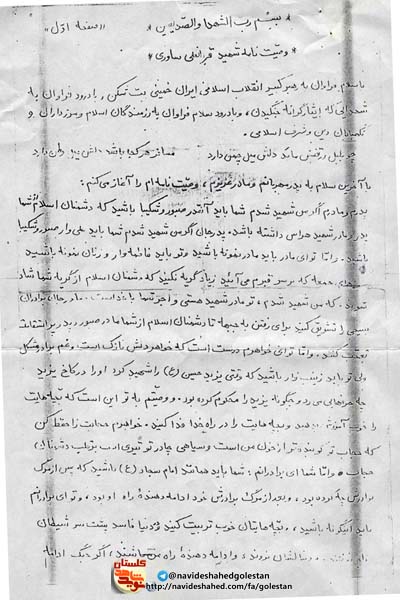 بسم رب الشهدا والصدیقین «صفحه اول»
وصیت نامه شهید قربانعلی ساوری
باسلام فراوان به رهبر کبیر انقلاب اسلامی ایران خمینی بت شکن و بادرود فراوان به
شهدایی که ایثارگرانه جنگیدن، و بادرود سلام فراوان به رزمندگان اسلام و مرزداران و
نگهبانان دین و شرف اسلامی.
چو بلبل رفتنش ماند دلش پیش چمن دارد مسافر هر کجا باشد دلش پیش وطن دارد
با آخرین سلام به پدر مهربانم و مادر عزیزم، وصیت نامه ام را آغاز می کنم:
پدرم و مادرم اگر من شهید شدم شما باید آنقدر صبور و شکیبا باشید که دشمنان اسلام از شما
پدر و مادر شهید هراس داشته باشد. پدر جان اگر من شهید شدم شما باید علی وار صبور و شکیبا
باشد. و اما تو ای مادر باید مادر نمونه باشید و تو باید فاطمه وار و زنان نمونه باشید
جمعه که بر سر قبرم می آئید زیاد گریه نکنید که دشمنان اسلام از گریه شما شاد
شوند. که من شهید شدم، تو مادر شهید هستی و اجر شما با خداست. مادر جان برادران
بسیجی را تشویق کنید برای رفتن به جبهه تا دشمنان اسلام از شما مادر صبور و پر استقامت
تعجب کنند. و اما تو ای خواهرم درست است که خواهر دلش نازک است و غم برادر مشکل
ولی تو باید زینب وار باشید که وقتی یزید حسین (ع) را شهید کرد او را در کاخ یزید
چه حرفهایی می زد و چگونه یزید را محکوم کرده بود. و وصیتم به تو این است که بچه هایت
را خوب آموزش بدهید و بچه هایت را در راه خدا فدا کنید. خواهرم حجابت را حفظ کن
که حجاب تو کوبنده تر از خون من است و سیاهی چادر تو تیری است به قلب دشمنان
حجاب و اما شما ای برادرانم: شما باید همانند امام سجاد (ع) باشید که پس از مرگ
برادرش چه بوده بود، و بعد از مرگ برادرش خود ادامه دهنده راه او بود، و تو ای برادرانم
باید اینگونه باشید، و بچه هایتان خوب تربیت کنید و دنیا فاسد پشت سر شیطان
نروند، و ادامه دهنده راه من باشند، اگر جنگ ادامه
گلستان
نوید شاهد
@navideshahedgolestan
http://navideshahed.com/fa/golestan